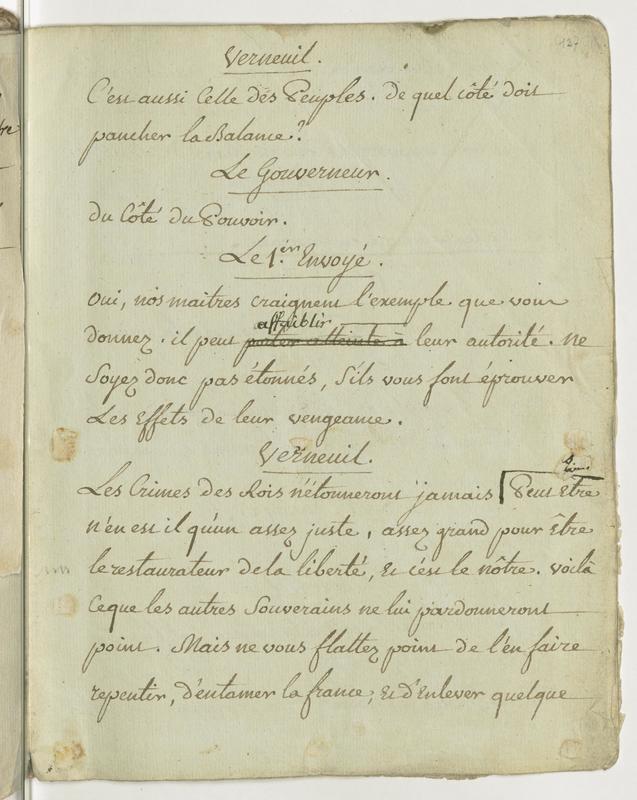 127
Verneuil.
C'est aussi Celle des Peuples. de quel côté doit
pancher la Balance?
Le Gouverneur.
du Côté du Pouvoir.
Le 1.er Envoyé.
Oui, nos maitres craignent l'exemple que vous
affaiblir
donnez. il peut porter atteinte à leur autorité. ne
Soyez donc pas étonnés, S'ils vous font éprouver
Les Effets de leur vengeance.
Verneuil.
Les Crimes des Rois n'étonneront jamais Peut Etre
n'en est il qu'un assez juste, assez grand pour Être
le restaurateur de la liberté, & c'est le nôtre. voilà
Ce que les autres Souverains ne lui pardonneront
point. Mais ne vous flattez point de l'en faire
repentir, d'entamer la france, & d'Enlever quelque